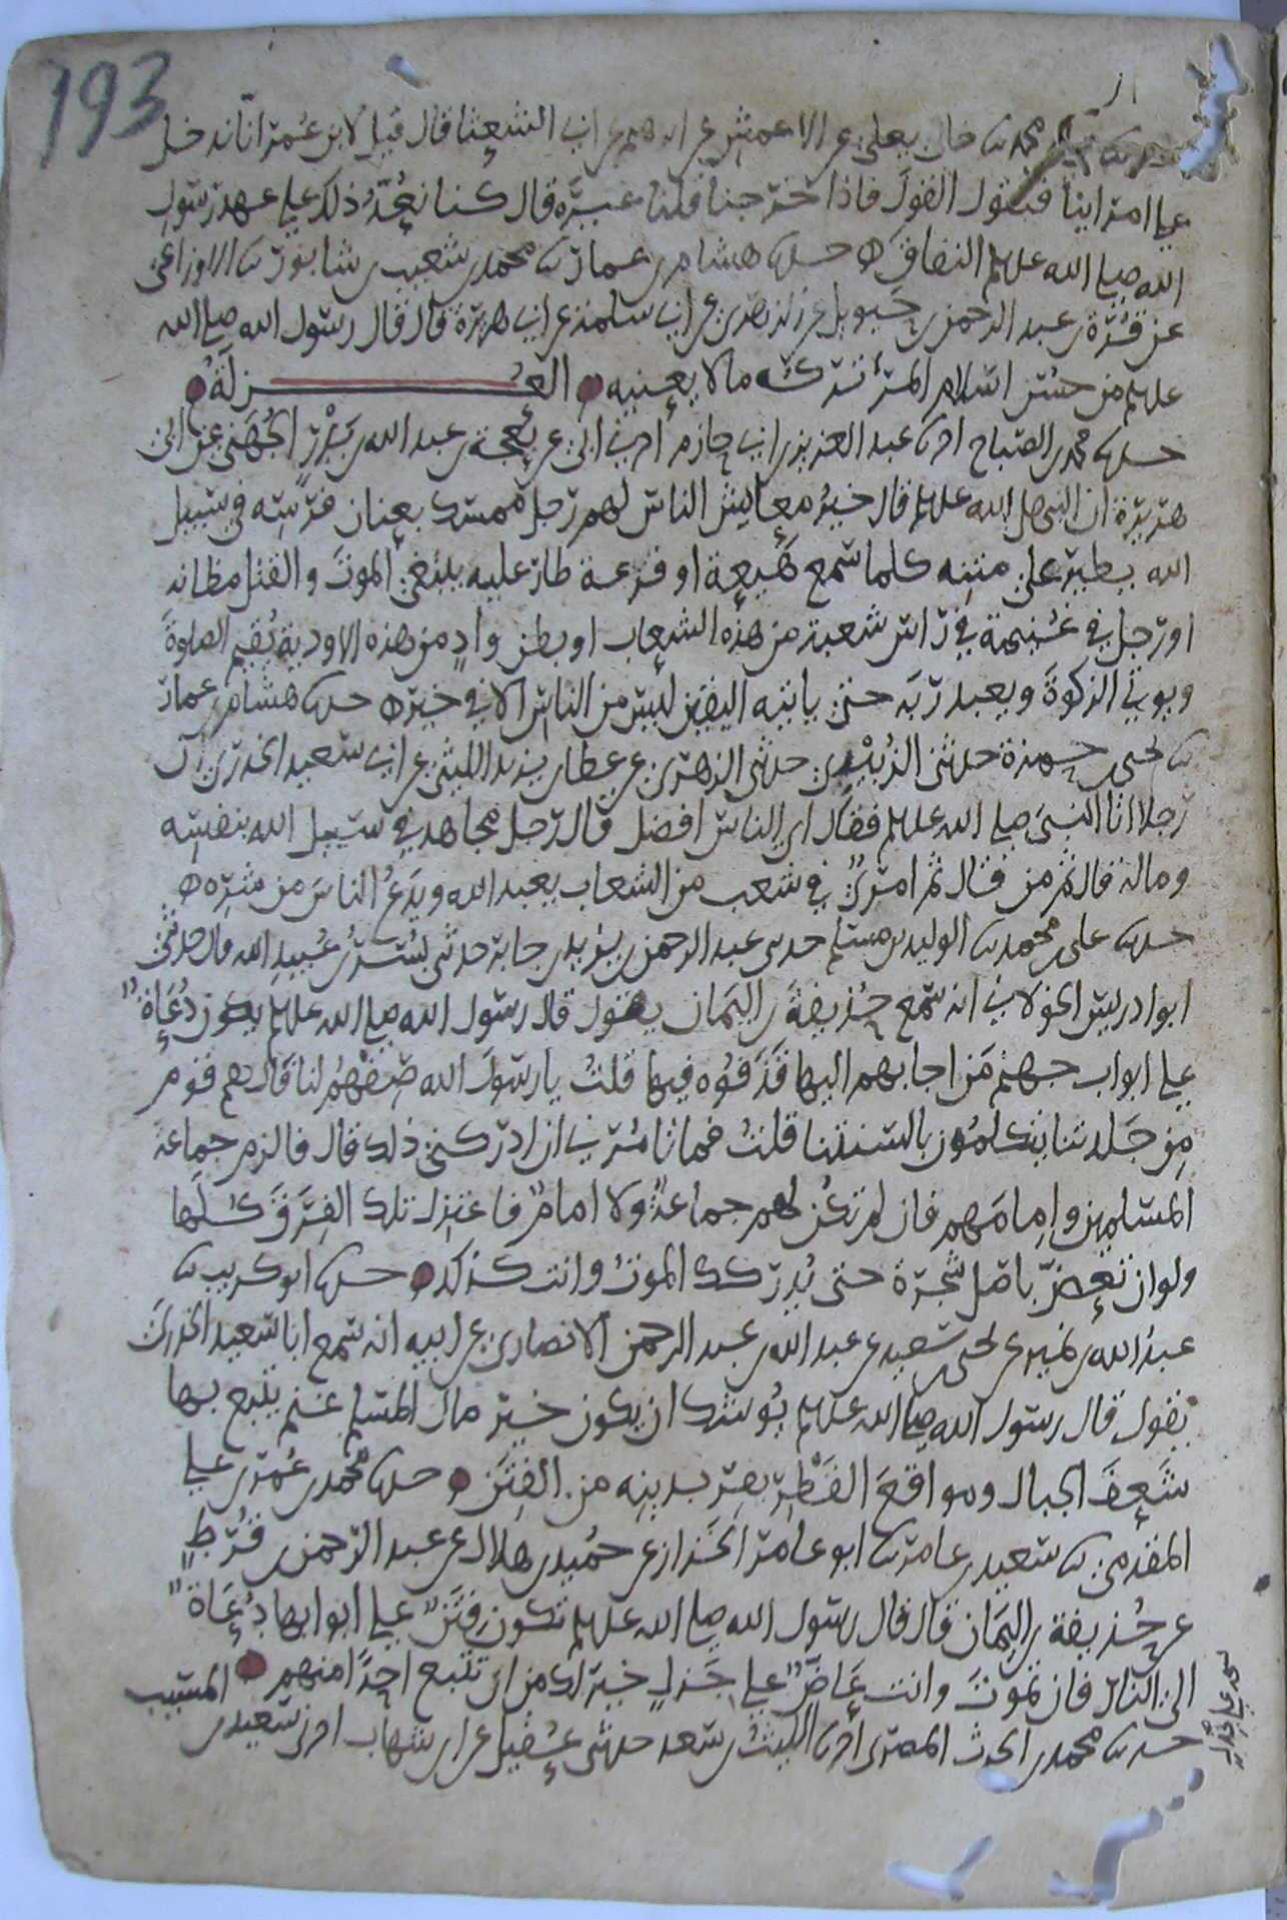 193
خالي يعلى عن الاعمش عن ابرهيم عن ابي الشعثا قال قيل لابن عمر انا ندخل
على امراينا فنقول القول فاذا خرجنا قلنا غيره قال كنا نعد ذلك على عهد رسول
الله صلى الله عليه وسلم النفاق ه حدثنا هشام بن عمار ثنا محمد بن شعيب بن شابور ثنا الاوزاعي
عن قرة بن عبد الرحمن بن حيوئيل عن الزهري عن ابي سلمة عن ابي هريرة قال قال رسول الله صلى الله
عليه وسلم من حسن اسلام المرء تركه ما لا يعنيه ه العزلة ه
حدثنا محمد بن الصباح انا عبد العزيز بن ابي حازم اخبرني ابي عن بعجة بن عبد الله بن بدر الجهني عن ابي
هريرة ان النبي صلى الله عليه وسلم قال خير معايش الناس لهم رجل ممسك بعنان فرسه في سبيل
الله يطير على متنه كلما سمع هيعة او فزعة طار عليه يبتغي الموت والقتل مظانه
او رجل في غنيمة في راس شعبة من هذه الشعاب او بطن واد من هذه الاودية يقيم الصلوة
ويوتي الزكوة ويعبد ربه حتى ياتيه اليقين ليس من الناس الا في خير ه حدثنا هشام بن عمار
ثنا يحيى بن حمزة حدثني الزبيدي حدثني الزهري عن عطا بن يزيد الليثي عن ابي سعيد الخدري ان
رجلا اتا النبي صلى الله عليه وسلم فقال اي الناس افضل قال رجل مجاهد في سبيل الله بنفسه
وماله قال ثم من قال ثم امرؤ في شعب من الشعاب يعبد الله ويدع الناس من شره ه
حدثنا علي بن محمد ثنا الوليد بن مسلم حدثني عبد الرحمن بن يزيد بن جابر حدثني بسر بن عبيد الله قال حدثني
ابو ادريس الخولاني انه سمع حذيفة بن اليمان يقول قال رسول الله صلى الله عليه وسلم يكون دعاة
على ابواب جهنم من اجابهم اليها قذفوه فيها قلت يا رسول الله صفهم لنا قال هم قوم
من جلدتنا يتكلمون بالسنتنا قلت فما تامرني ان ادركني ذلك قال فالزم جماعة
المسلمين وامامهم فان لم تكن لهم جماعة ولا امام فاعتزل تلك الفرق كلها
ولو ان تعض باصل شجرة حتى يدركك الموت وانت كذلك ه حدثنا ابو كريب ثنا
عبد الله بن نمير عن يحيى بن سعيد عن عبد الله بن عبد الرحمن الانصاري عن ابيه انه سمع ابا سعيد الخدري
يقول قال رسول الله صلى الله عليه وسلم يوشك ان يكون خير مال المسلم غنم يتبع بها
شعف الجبال ومواقع القطر يفر بدينه من الفتن ه حدثنا محمد بن عمر بن علي
المقدمي ثنا سعيد بن عامر ثنا ابو عامر الخزاز عن حميد بن هلال عن عبد الرحمن بن قرط
عن حذيفة بن اليمان قال قال رسول الله صلى الله عليه وسلم تكون فتن على ابوابها دعاة
الى النار فان تموت وانت عاض على جذل خير لك من ان تتبع احدا منهم ه
حدثنا محمد بن الحرث المصري انا الليث بن سعد حدثني عقيل عن ابن شهاب اخبرني سعيد بن المسيب